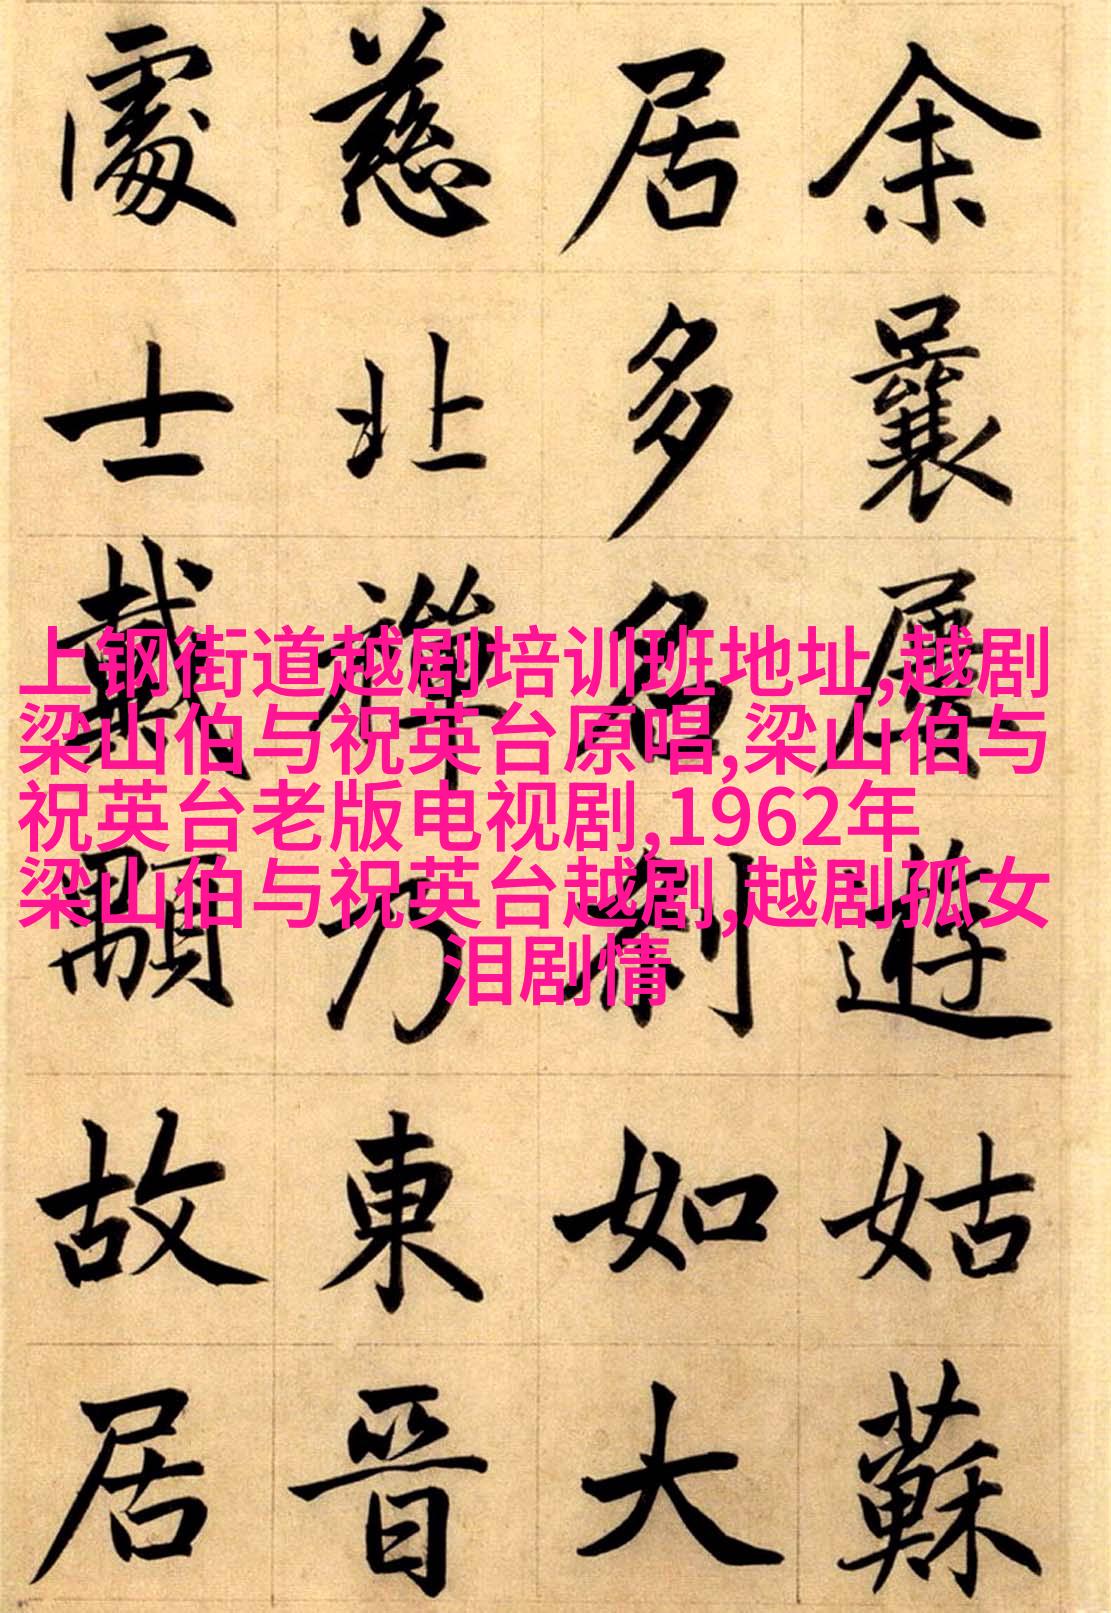 余曩屢遊姑蘇
居多名刹如大
慈北禅乃東晉
處士戴顒故居
上钢街道越剧培训班地址,越剧
梁山伯与祝英台原唱,梁山伯与
祝英台老版电视剧,1962年
梁山伯与祝英台越剧,越剧孤女
泪剧情